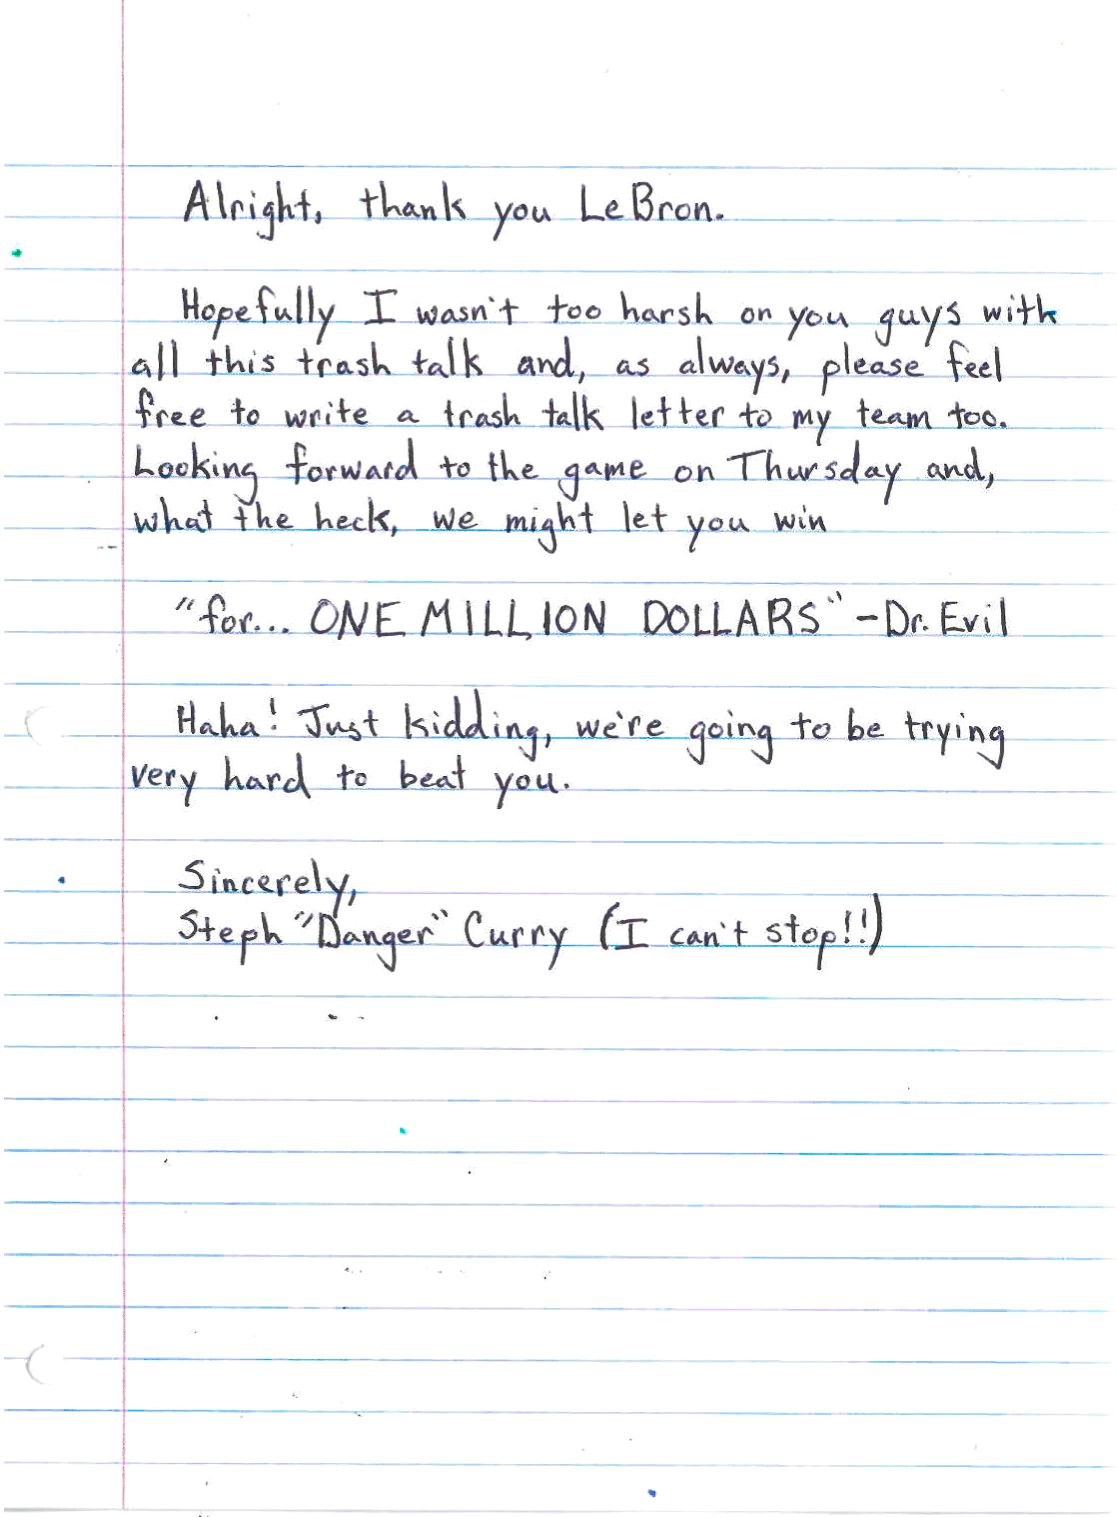 Alright, thank you LeBron.
Hopefully I wasn't too harsh on you guys with
all this trash talk and, as always, please feel
free to write a trash talk letter to my team too.
Looking forward to the game on Thursday and,
what the heck, we might let you win
"for... ONE MILLION DOLLARS" -Dr. Evil
Haha! Just kidding, we're going to be trying
very hard to beat you.
Sincerely,
Steph "Danger" Curry (I can't stop!!)